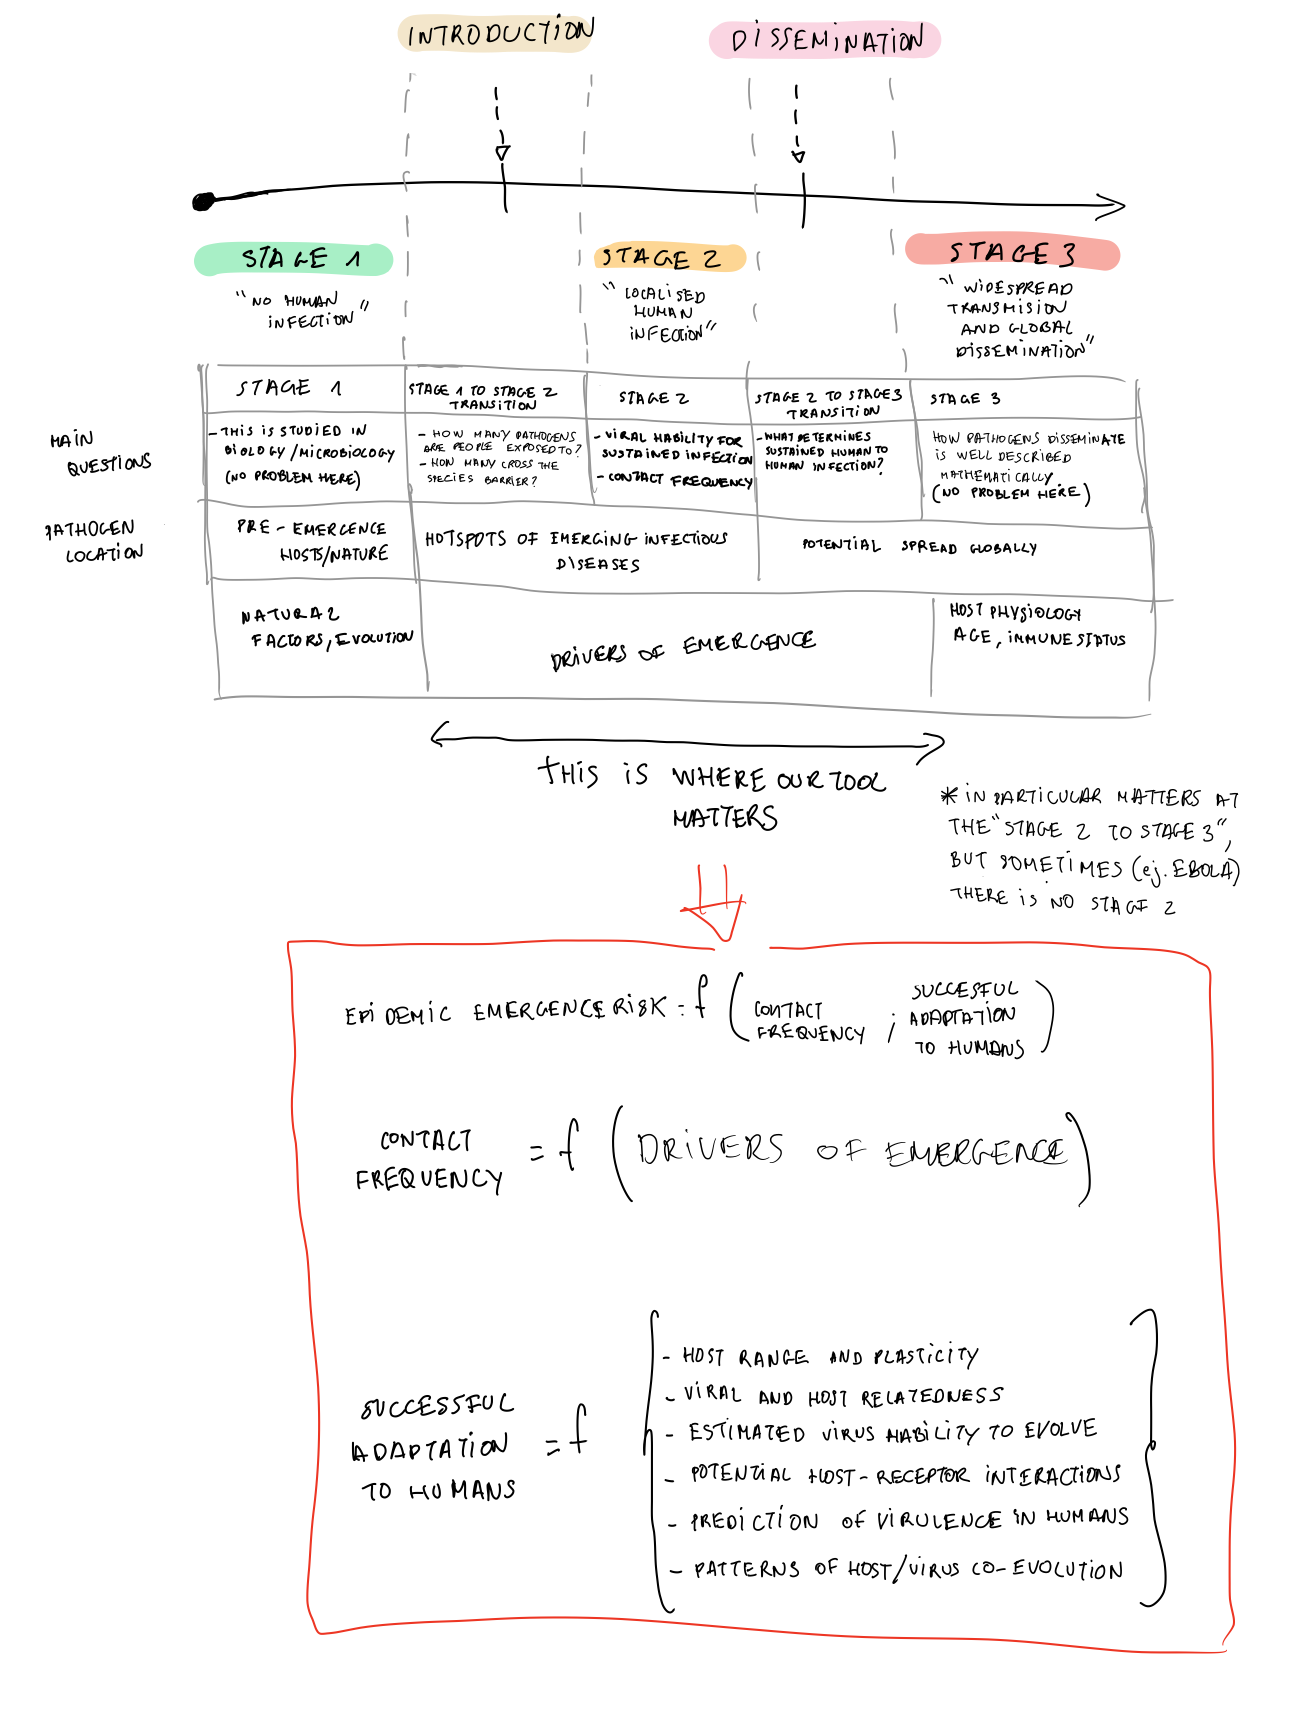 INTRODUCTION
DISSEMINATION
STAGE 1
"NO HUMAN
INFECTION"
STAGE 2
"LOCALISED
HUMAN
INFECTION"
STAGE 3
"WIDESPREAD
TRANSMISION
AND GLOBAL
DISSEMINATION"
STAGE 1
STAGE 1 TO STAGE 2
TRANSITION
STAGE 2
STAGE 2 TO STAGE 3
TRANSITION
STAGE 3
MAIN
QUESTIONS
- THIS IS STUDIED IN
BIOLOGY/MICROBIOLOGY
(NO PROBLEM HERE)
- HOW MANY PATHOGENS
ARE PEOPLE EXPOSED TO?
- HOW MANY CROSS THE
SPECIES BARRIER?
- VIRAL HABILITY FOR
SUSTAINED INFECTION
- CONTACT FREQUENCY
- WHAT DETERMINES
SUSTAINED HUMAN TO
HUMAN INFECTION?
HOW PATHOGENS DISSEMINATE
IS WELL DESCRIBED
MATHEMATICALLY
(NO PROBLEM HERE)
PATHOGEN
LOCATION
PRE-EMERGENCE
HOSTS/NATURE
HOTSPOTS OF EMERGING INFECTIOUS
DISEASES
POTENTIAL SPREAD GLOBALLY
NATURAL
FACTORS, EVOLUTION
DRIVERS OF EMERGENCE
HOST PHYSIOLOGY
AGE, INMUNE STATUS
THIS IS WHERE OUR TOOL
MATTERS
* IN PARTICULAR MATTERS AT
THE "STAGE 2 TO STAGE 3",
BUT SOMETIMES (ej. EBOLA)
THERE IS NO STAGE 2
EPIDEMIC EMERGENCE RISK = f (CONTACT FREQUENCY ; SUCCESFUL ADAPTATION TO HUMANS)
CONTACT
FREQUENCY = f (DRIVERS OF EMERGENCE)
SUCCESSFUL
ADAPTATION = f
TO HUMANS
- HOST RANGE AND PLASTICITY
- VIRAL AND HOST RELATEDNESS
- ESTIMATED VIRUS HABILITY TO EVOLVE
- POTENTIAL HOST-RECEPTOR INTERACTIONS
- PREDICTION OF VIRULENCE IN HUMANS
- PATTERNS OF HOST/VIRUS CO-EVOLUTION